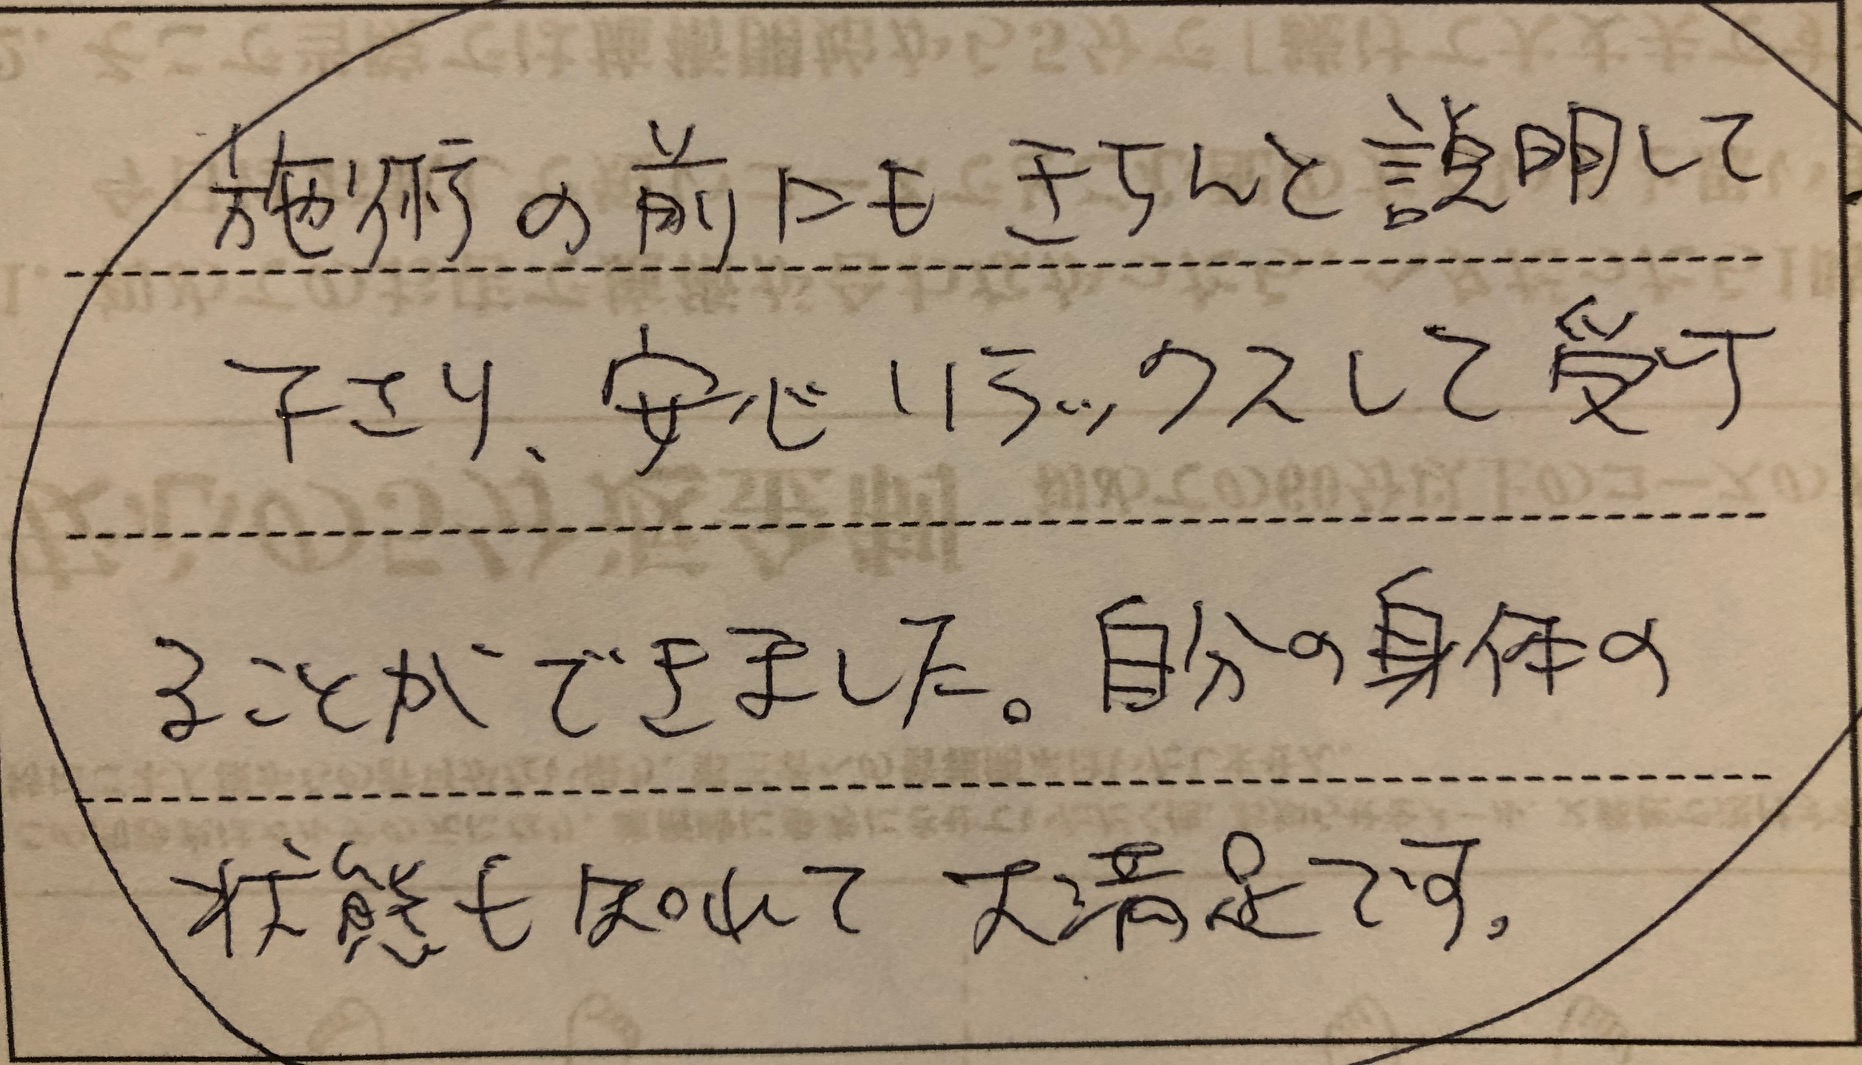 施術の前にもきちんと説明して
下さり、安心リラックスして受け
ることができました。自分の身体の
状態も知れて大満足です。